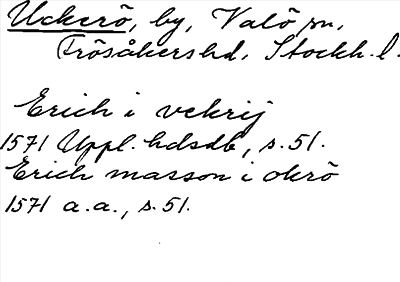 Uckerö, by, Valö sn,
Frösåkers hd, Stockh. l.
Erich i vekrij
1571 Uppl. hdsdb, s. 51.
Erich masson i okrö
1571 a.a., s. 51.